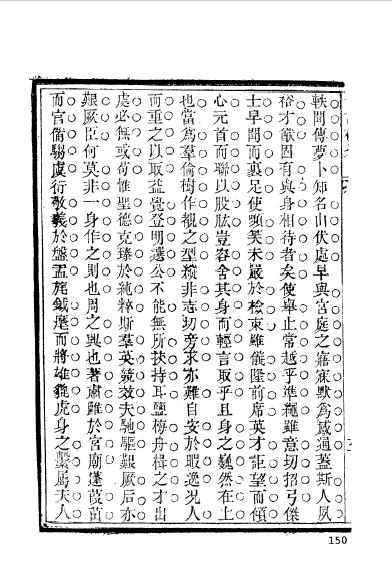 軼間傅夢卜知名山伏處早與宮庭之寤寐默為感通蓋斯人夙
裕才猷固有與身相待者矣使舉止常越乎準繩雖意切招弓傑
士早聞而裹足使嚬笑未嚴於檢束雖儀隆前席英才詎望而傾
心元首而聯以股肱豈容舍其身而輕言取乎且身之巍然在上
也當為羣倫樹作覩之型縱非志切旁求亦難自安於暇逸况人
而重之以取登明選公不能無所扶持耳鹽梅舟楫之才出
處必無或苟惟聖德克臻於純粹斯羣英競效夫馳驅艱厥后亦
艱厥臣何莫非一身作之則也周之興也著肅雝於宮廟
而官備騶虞衍敬義於盤盂旄鉞麾而將雄貔虎身之繫屬夫人
150